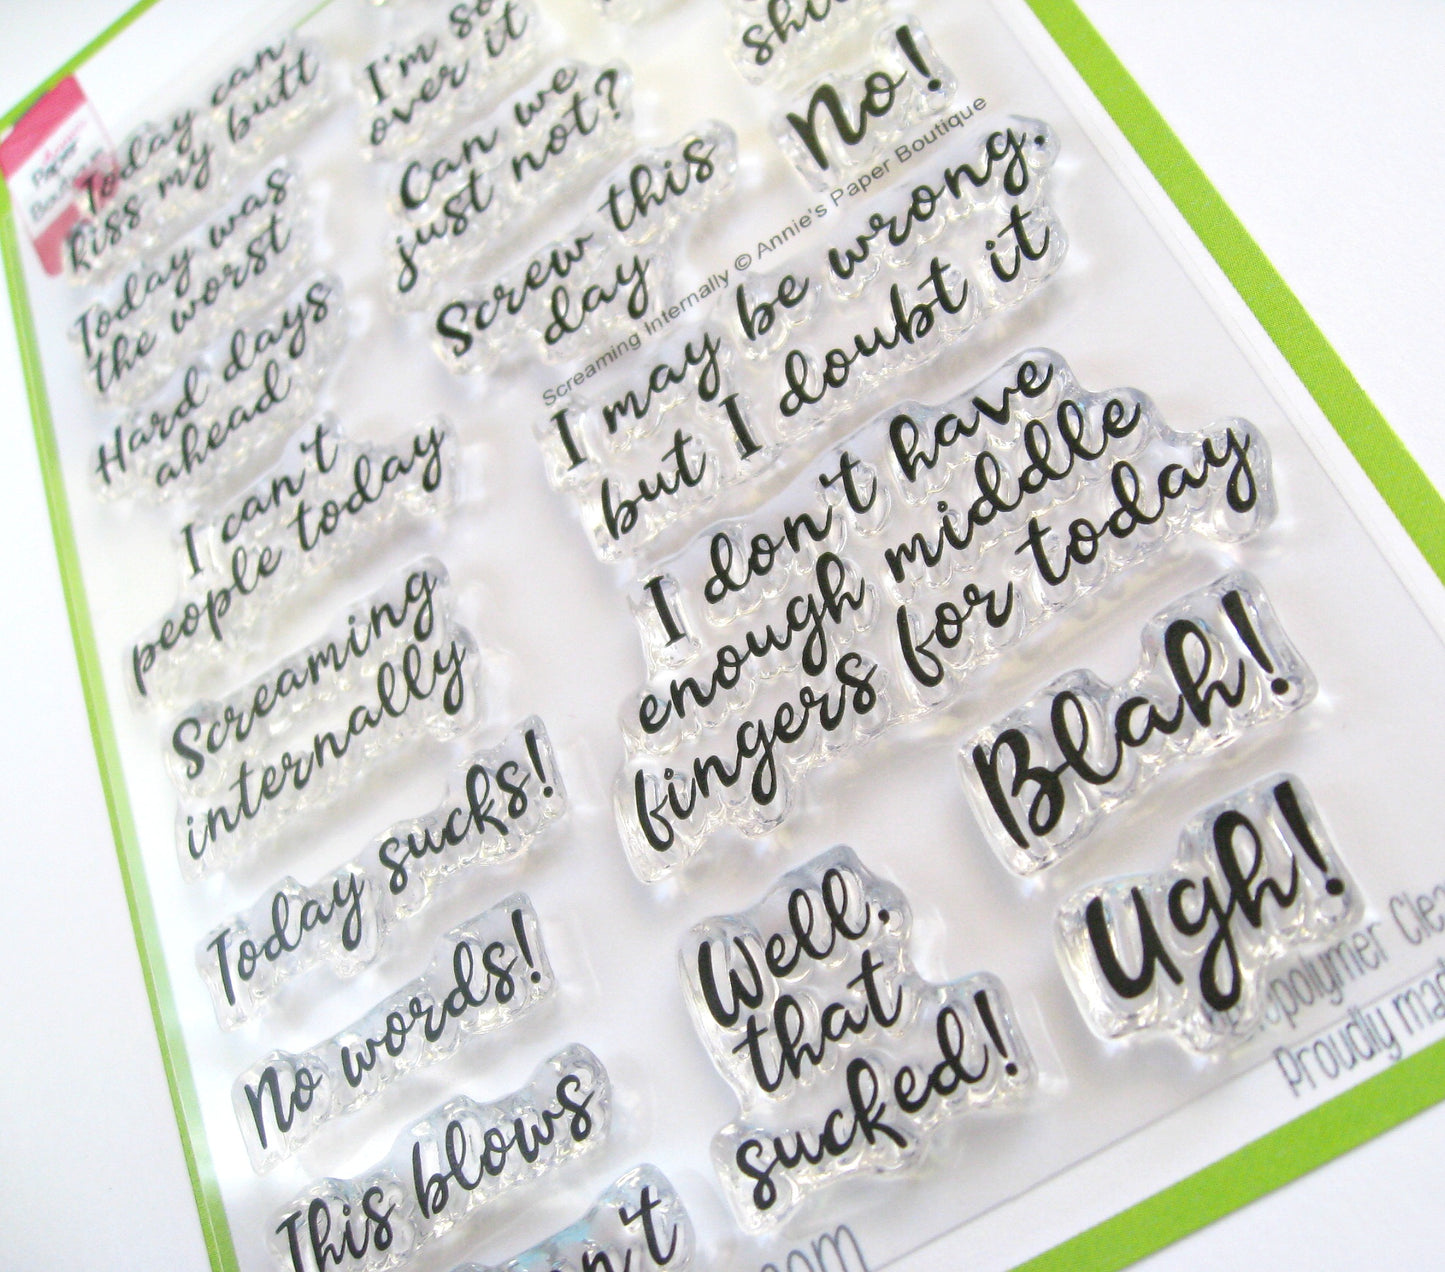 Today can
kiss my butt
Today was
the worst
Hard days
ahead
I can't
people today
Screaming
internally
Today sucks!
No words!
This blows
I'm so
over it
Can we
just not?
Screw this
day
No!
Screaming Internally © Annie's Paper Boutique
I may be wrong.
but I doubt it
I don't have
enough middle
fingers for today
Blah!
Ugh!
Well,
that
sucked!
Proudly
Paper
Boutique